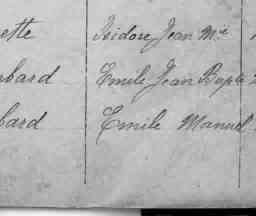 ette Isidore Jean Mie
bard Emile Jean Bapte
bard Emile Manuel